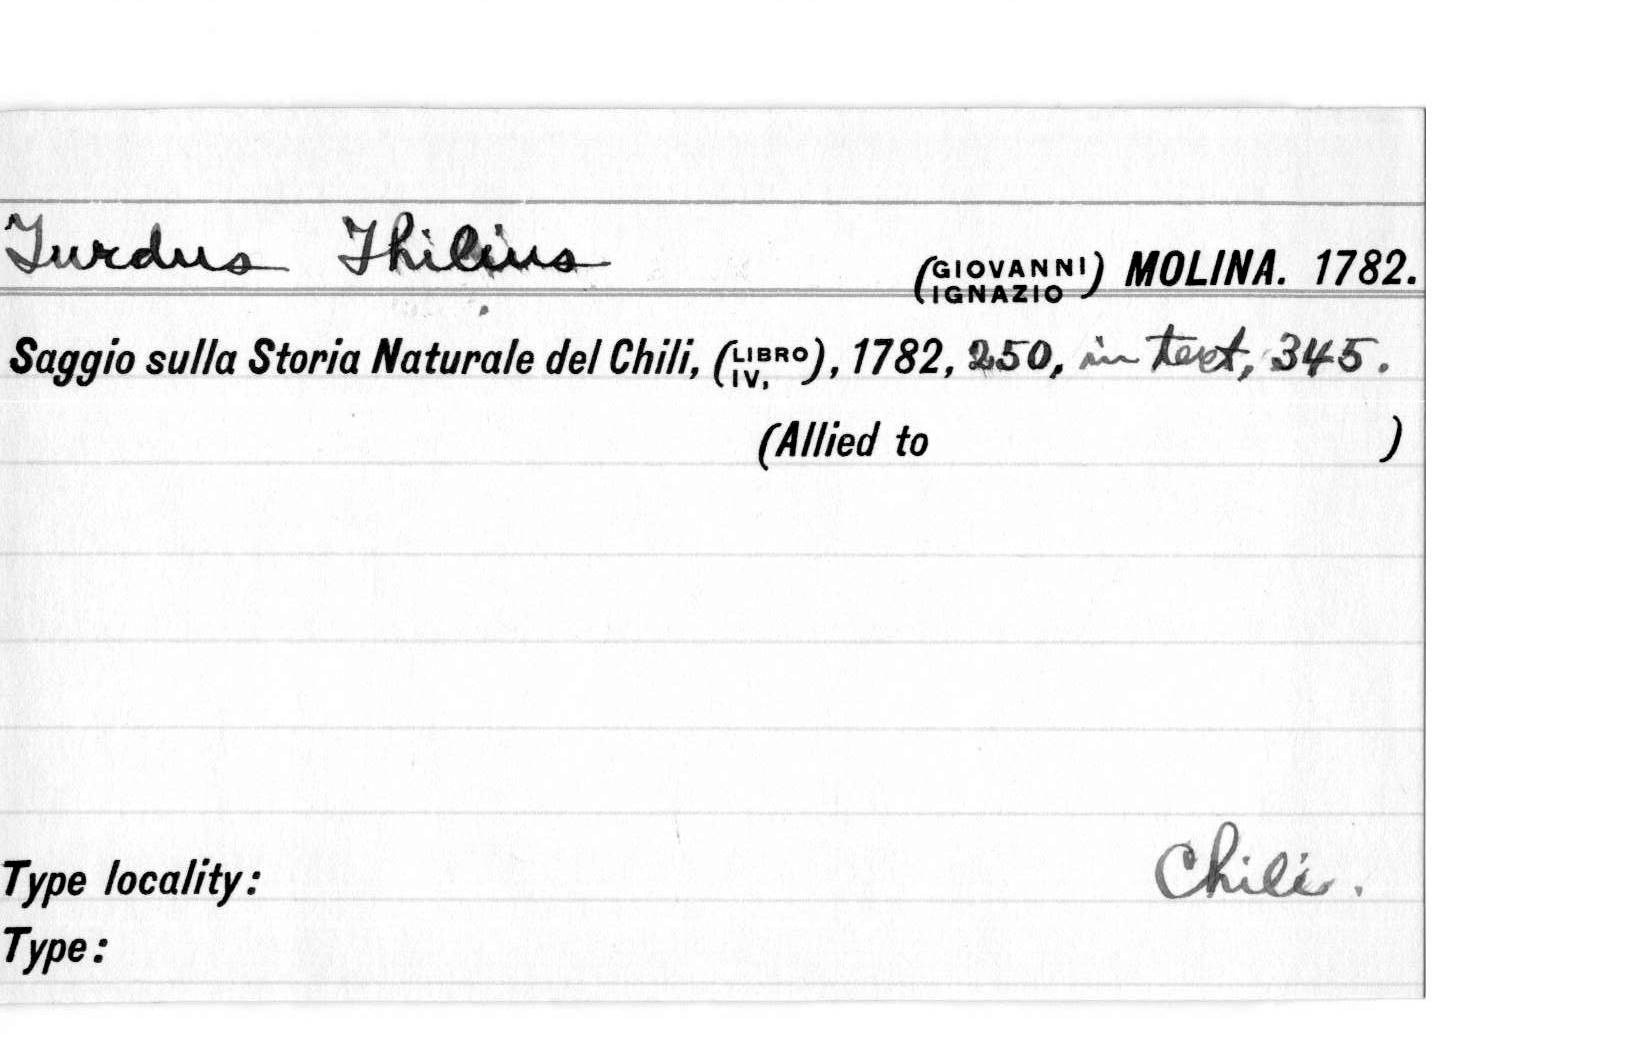 Turdus Thilius (GIOVANNI IGNAZIO) MOLINA. 1782.
Saggio sulla Storia Naturale del Chili, (LIBRO IV,), 1782, 250, in text, 345.
(Allied to )
Type locality: Chili.
Type: